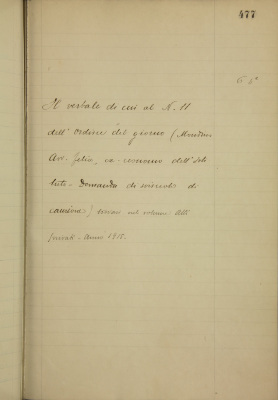 477
6 6°
Il verbale di cui al N. 11
dell'Ordine del giorno (
Avv. ex-economo dell'Isti
tuto - Domanda di svincolo di
cauzione) nel volume
- Anno 1915.